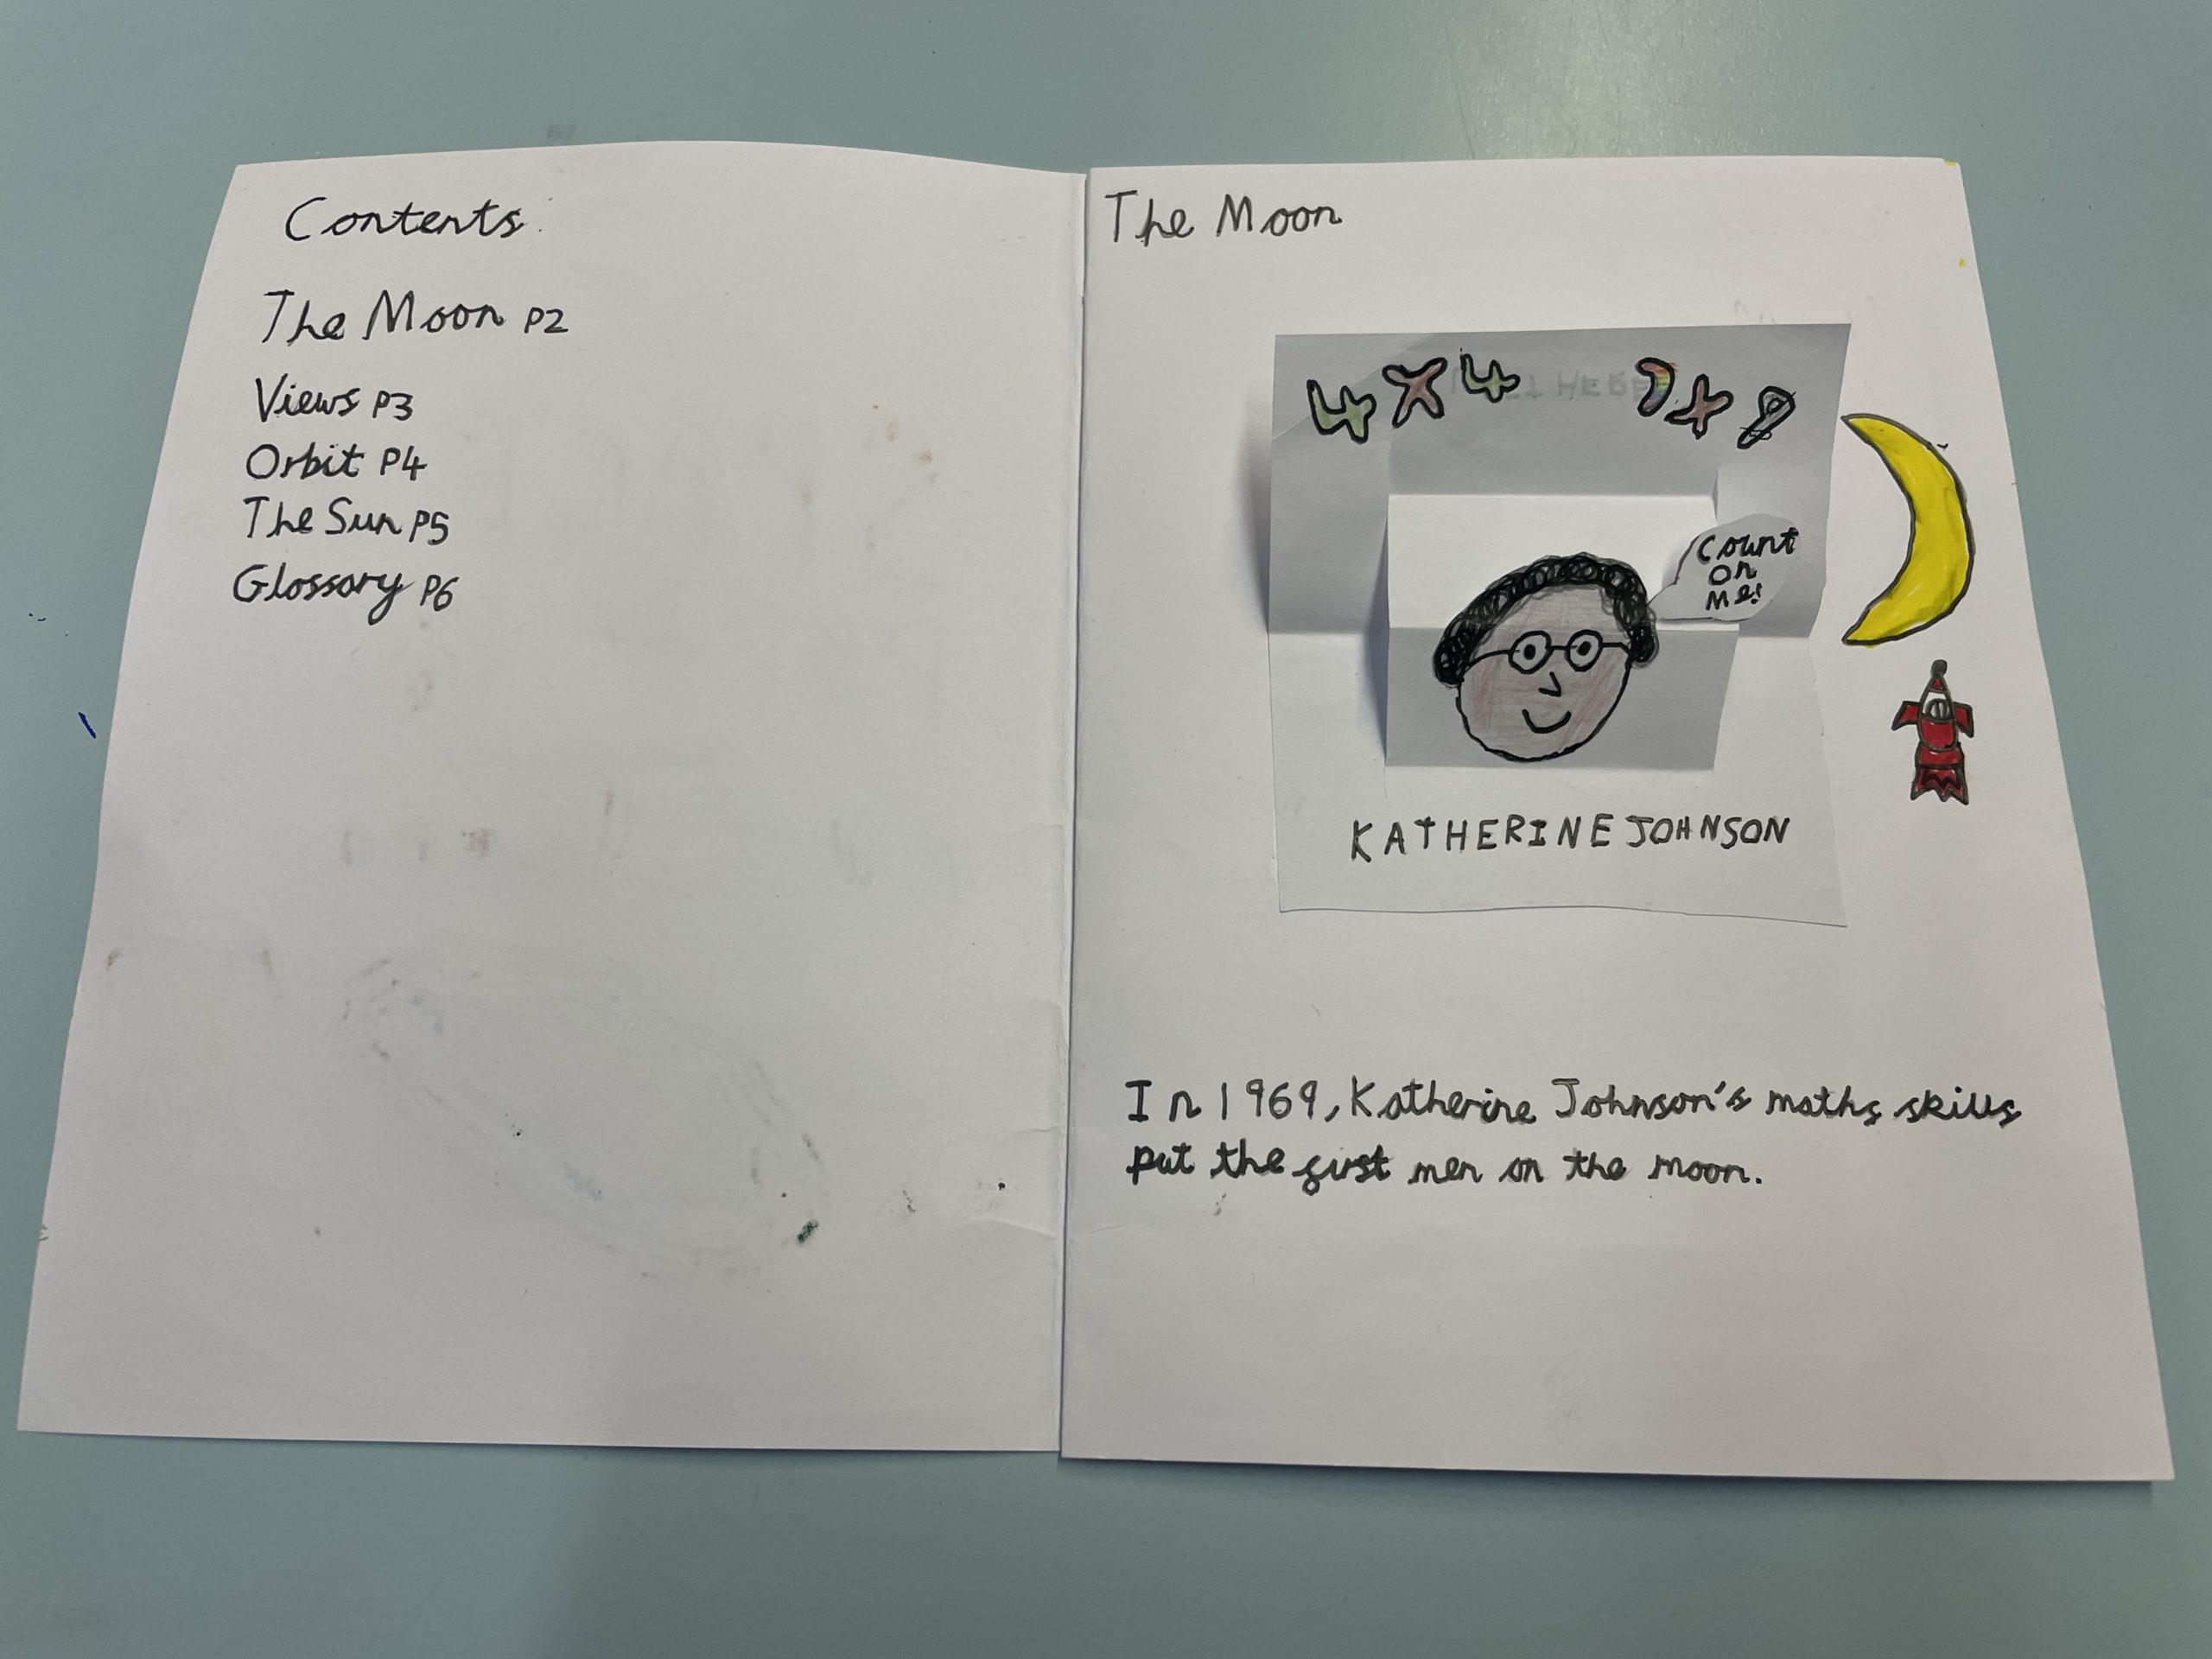 Contents
The Moon P2
Views P3
Orbit P4
The Sun P5
Glossary P6
The Moon
4 x 4 7 x 9
Count
On
Me!
KATHERINE JOHNSON
In 1969, Katherine Johnson's maths skills
put the first men on the moon.